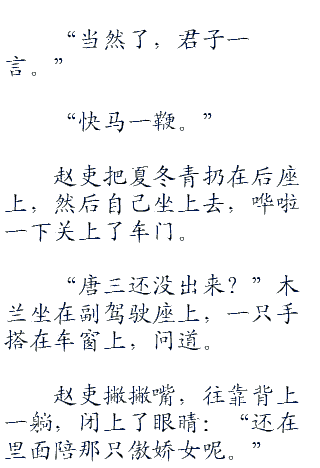 “当然了，君子一
言。”
“快马一鞭。”
赵吏把夏冬青扔在后座
上，然后自己坐上去，哗啦
一下关上了车门。
“唐三还没出来？”木
兰坐在副驾驶座上，一只手
搭在车窗上，问道。
赵吏撇撇嘴，往靠背上
一躺，闭上了眼睛：“还在
里面陪那只傲娇女呢。”